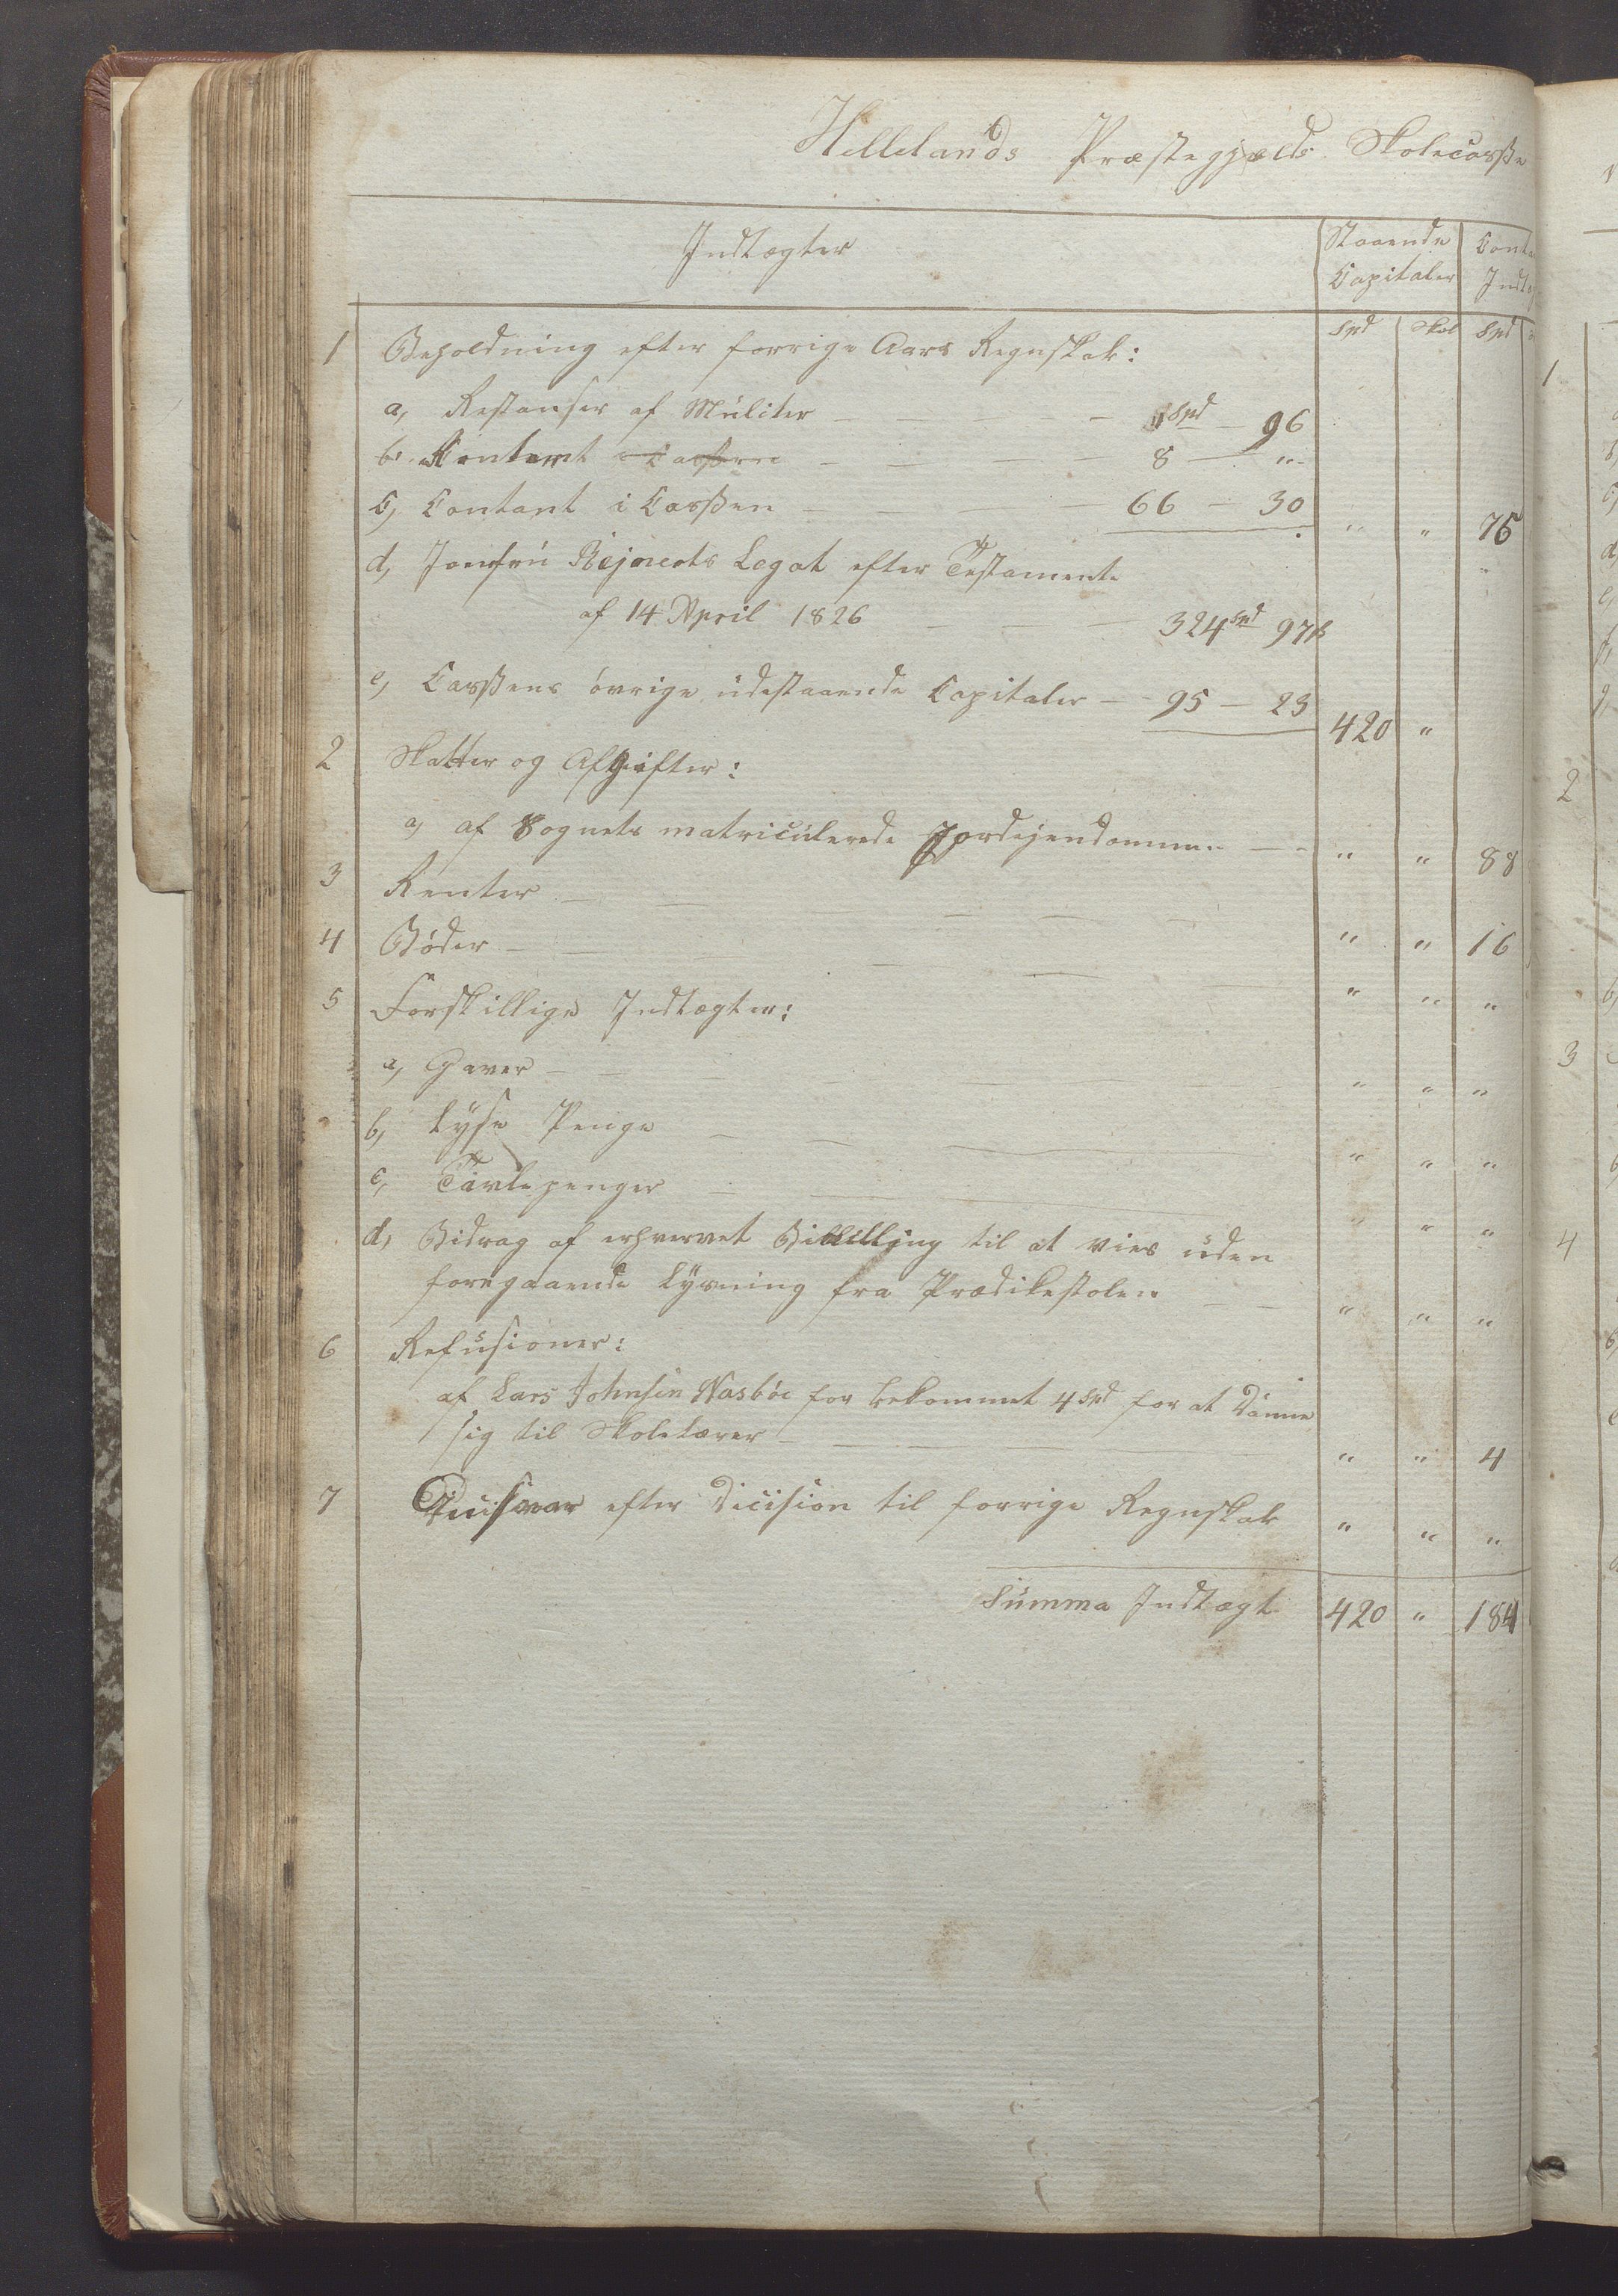 Hellelands Præstegjælds Skolecasse
Indtægter
Staaende Capitaler
Spd Skil Spd
1 Beholdning efter forrige Aars Regnskab:
a, Restanser af Mulcter — — — 1 Spd — 96
b. — — — 8 — "
c, Contant i Cassen — — — 66 — 30 " " 75
d, Jomfru Legat efter Testamente
af 14 April 1826 — — — 324 Spd 97 ß
e, Cassens øvrige udestaaende Capitaler — 95 — 23 420 "
2 Skatter og Afgifter:
a, af Sognets matriculerede Jordejendomme — " " 88
3 Renter — — — " " 16
4 Bøder — — — " " "
5 Forskillige Indtægter:
a, Gaver — — — " " "
b, Lyse Penge — — — " " "
c, Tavlepenger — — — " " "
d, Bidrag af erhvervet Bevilling til at vies uden
foregaaende Lysning fra Prædikestolen — — " " "
6 Refusioner:
af Lars Johnsen Nasbøe for bekommet 4 Spd for at danne
sig til Skolelærer — — — " " 4
7 efter Dicision til forrige Regnskab " " "
Summa Indtægt 420 " 184